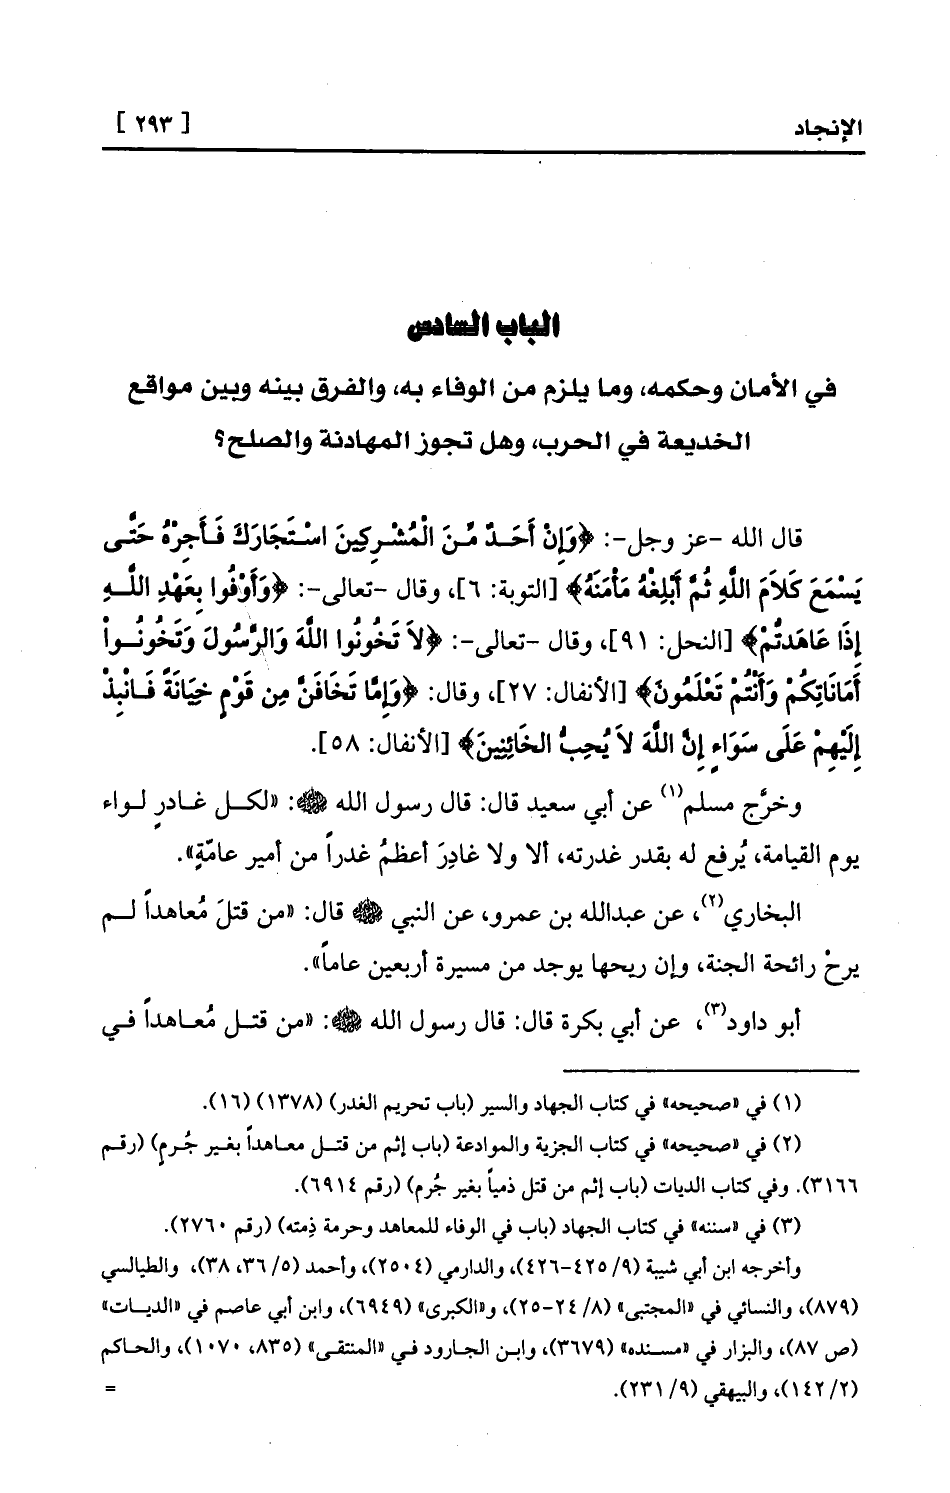 الإنجاد [ ٢٩٣ ]
الباب السادس
في الأمان وحكمه، وما يلزم من الوفاء به، والفرق بينه وبين مواقع
الخديعة في الحرب، وهل تجوز المهادنة والصلح؟
قال الله -عز وجل-: ﴿وَإِنْ أَحَدٌ مِّنَ الْمُشْرِكِينَ اسْتَجَارَكَ فَأَجِرْهُ حَتَّى
يَسْمَعَ كَلاَمَ اللَّهِ ثُمَّ أَبْلِغْهُ مَأْمَنَهُ﴾ [التوبة: ٦]، وقال -تعالى-: ﴿وَأَوْفُوا بِعَهْدِ اللَّهِ
إِذَا عَاهَدتُّمْ﴾ [النحل: ٩١]، وقال -تعالى-: ﴿لاَ تَخُونُوا اللَّهَ وَالرَّسُولَ وَتَخُونُوا
أَمَانَاتِكُمْ وَأَنْتُمْ تَعْلَمُونَ﴾ [الأنفال: ٢٧]، وقال: ﴿وَإِمَّا تَخَافَنَّ مِن قَوْمٍ خِيَانَةً فَانْبِذْ
إِلَيْهِمْ عَلَى سَوَاءٍ إِنَّ اللَّهَ لاَ يُحِبُّ الخَائِنِينَ﴾ [الأنفال: ٥٨].
وخرَّج مسلم(١) عن أبي سعيد قال: قال رسول الله ﷺ: «لكل غادرٍ لواء
يوم القيامة، يُرفع له بقدر غدرته، ألا ولا غادِرَ أعظمُ غدراً من أمير عامّةٍ».
البخاري(٢)، عن عبدالله بن عمرو، عن النبي ﷺ قال: «من قتلَ مُعاهداً لم
يرحْ رائحة الجنة، وإن ريحها يوجد من مسيرة أربعين عاماً».
أبو داود(٣)، عن أبي بكرة قال: قال رسول الله ﷺ: «من قتل مُعاهداً في
(١) في «صحيحه» في كتاب الجهاد والسير (باب تحريم الغدر) (١٣٧٨) (١٦).
(٢) في «صحيحه» في كتاب الجزية والموادعة (باب إثم من قتل معاهداً بغير جُرمٍ) (رقم
٣١٦٦). وفي كتاب الديات (باب إثم من قتل ذمياً بغير جُرم) (رقم ٦٩١٤).
(٣) في «سننه» في كتاب الجهاد (باب في الوفاء للمعاهد وحرمة ذِمته) (رقم ٢٧٦٠).
وأخرجه ابن أبي شيبة (٩/ ٤٢٥-٤٢٦)، والدارمي (٢٥٠٤)، وأحمد (٥/ ٣٦، ٣٨)، والطيالسي
(٨٧٩)، والنسائي في «المجتبى» (٨/ ٢٤-٢٥)، و«الكبرى» (٦٩٤٩)، وابن أبي عاصم في «الديات»
(ص ٨٧)، والبزار في «مسنده» (٣٦٧٩)، وابن الجارود في «المنتقى» (٨٣٥، ١٠٧٠)، والحاكم
(٢/ ١٤٢)، والبيهقي (٩/ ٢٣١). =